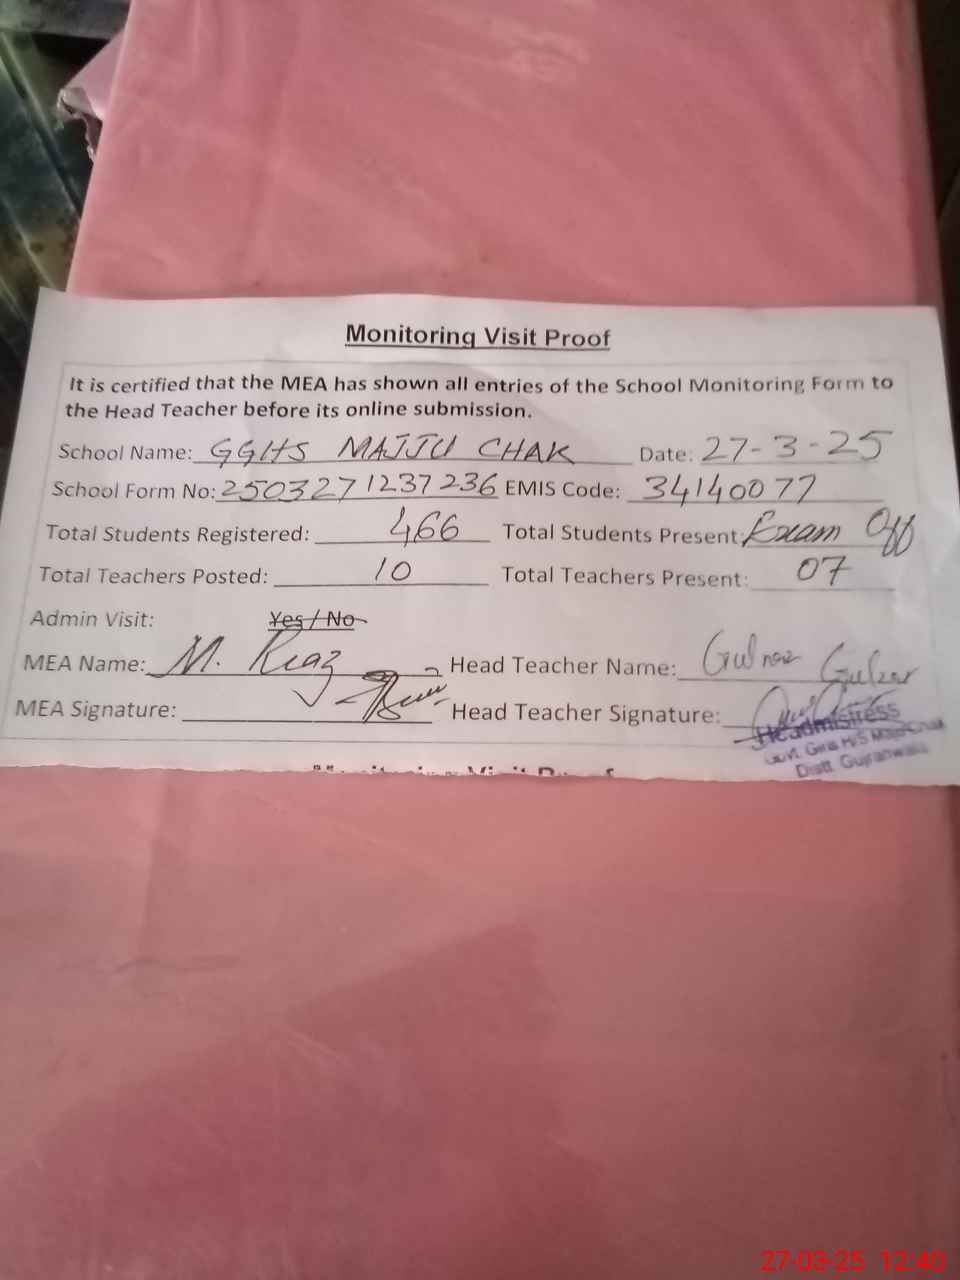 Monitoring Visit Proof
It is certified that the MEA has shown all entries of the School Monitoring Form to
the Head Teacher before its online submission.
School Name: GGHS MAJJU CHAK Date: 27-3-25
School Form No: 2503271237236 EMIS Code: 34140077
Total Students Registered: 466 Total Students Present: Exam Off
Total Teachers Posted: 10 Total Teachers Present: 07
Admin Visit: Yes / No
MEA Name: M. Riaz Head Teacher Name: Gulnaz Gulzar
MEA Signature: Head Teacher Signature:
Headmistress
Govt. Girls H/S Majju Chak
Distt. Gujranwala
27-03-25 12:40